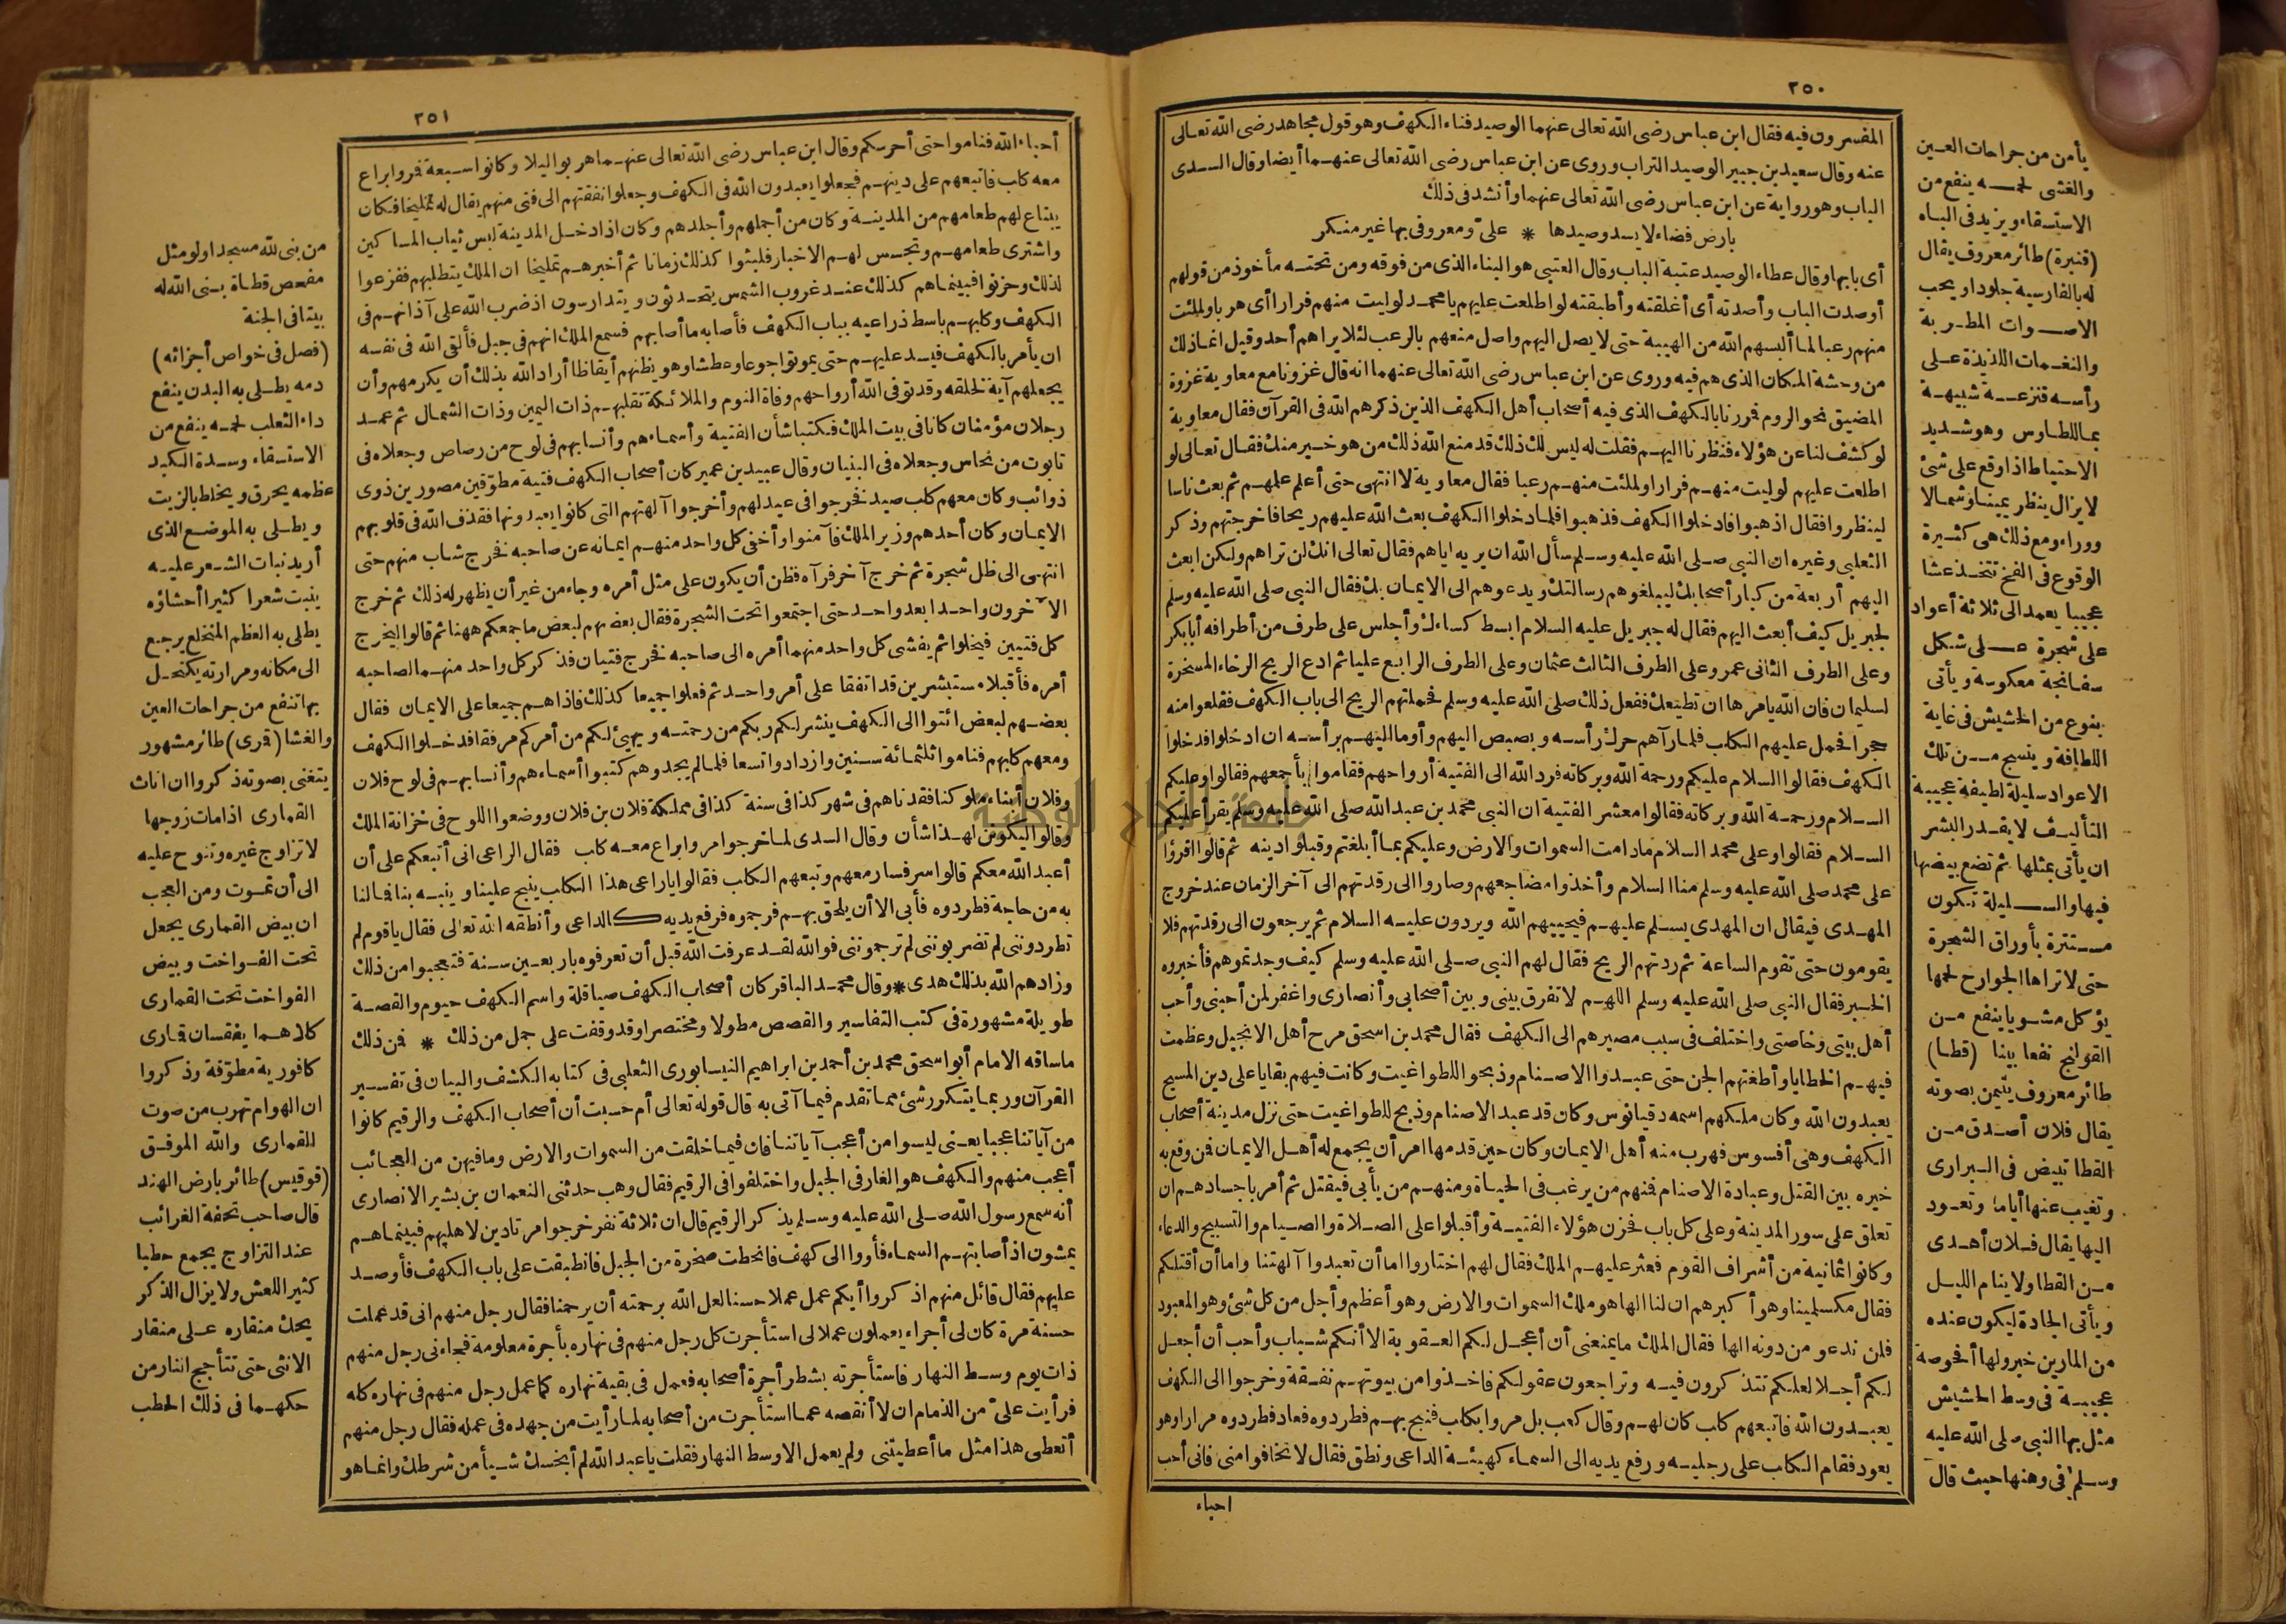 ٢٥٠
المفسرون فيه فقال ابن عباس رضى الله تعالى عنهما الوصيد فناء الكهف وهو قول مجاهد رضى الله تعالى
عنه وقال سعيد بن جبير الوصيد التراب وروى عن ابن عباس رضى الله تعالى عنهما أيضا وقال السدى
الباب وهو رواية عن ابن عباس رضى الله تعالى عنهما وأنشد فى ذلك
بارض فضاء لا يسد وصيدها * علىّ ومعروفى بها غير منكر
أى بابها وقال عطاء الوصيد عتبة الباب وقال العتبى هو البناء الذى من فوقه ومن تحته مأخوذ من قولهم
أوصدت الباب وأصدته أى أغلقته وأطبقته لو اطلعت عليهم يا محمد لوليت منهم فرارا أى هربا ولملئت
منهم رعبا لما ألبسهم الله من الهيبة حتى لا يصل اليهم واصل منعهم بالرعب لئلا يراهم أحد وقيل انما ذلك
من وحشة المكان الذى هم فيه وروى عن ابن عباس رضى الله تعالى عنهما انه قال غزونا مع معاوية غزوة
المضيق نحو الروم فمررنا بالكهف الذى فيه أصحاب أهل الكهف الذين ذكرهم الله فى القرآن فقال معاوية
لو كشف لنا عن هؤلاء فنظرنا اليهم فقلت له ليس لك ذلك قد منع الله ذلك من هو خير منك فقال تعالى لو
اطلعت عليهم لوليت منهم فرارا ولملئت منهم رعبا فقال معاوية لا انتهى حتى أعلم علمهم ثم بعث ناسا
لينظروا فقال اذهبوا فادخلوا الكهف فذهبوا فلما دخلوا الكهف بعث الله عليهم ريحا فاخرجتهم وذكر
الثعلبى وغيره ان النبى صلى الله عليه وسلم سأل الله ان يريه اياهم فقال تعالى انك لن تراهم ولكن ابعث
اليهم أربعة من كبار أصحابك ليبلغوهم رسالتك ويدعوهم الى الايمان بك فقال النبى صلى الله عليه وسلم
لجبريل كيف أبعث اليهم فقال له جبريل عليه السلام ابسط كساءك وأجلس على طرف من أطرافه أبا بكر
وعلى الطرف الثانى عمر وعلى الطرف الثالث عثمان وعلى الطرف الرابع عليا ثم ادع الريح الرخاء المسخرة
لسليمان فان الله يامرها ان تطيعك ففعل ذلك صلى الله عليه وسلم فحملتهم الريح الى باب الكهف فقلعوا منه
حجرا فحمل عليهم الكلب فلما رآهم حرك رأسه وبصبص اليهم وأومأ اليهم برأسه ان ادخلوا فدخلوا
الكهف فقالوا السلام عليكم ورحمة الله وبركاته فرد الله الى الفتية أرواحهم فقاموا بأجمعهم فقالوا وعليكم
السلام ورحمة الله وبركاته فقالوا معشر الفتية ان النبى محمد بن عبد الله صلى الله عليه وسلم يقرأ عليكم
السلام فقالوا وعلى محمد السلام ما دامت السموات والارض وعليكم بما أبلغتم وقبلوا دينه ثم قالوا اقرؤا
على محمد صلى الله عليه وسلم منا السلام وأخذوا مضاجعهم وصاروا الى رقدتهم الى آخر الزمان عند خروج
المهدى فيقال ان المهدى يسلم عليهم فيحييهم الله ويردون عليه السلام ثم يرجعون الى رقدتهم فلا
يقومون حتى تقوم الساعة ثم ردتهم الريح فقال لهم النبى صلى الله عليه وسلم كيف وجدتموهم فأخبروه
الخبر فقال النبى صلى الله عليه وسلم اللهم لا تفرق بينى وبين أصحابى وأنصارى واغفر لمن أحبنى وأحب
أهل بيتى وخاصتى واختلف فى سبب مصيرهم الى الكهف فقال محمد بن اسحق مرح أهل الانجيل وعظمت
فيهم الخطايا وأطغتهم الجن حتى عبدوا الاصنام وذبحوا للطواغيت وكانت فيهم بقايا على دين المسيح
يعبدون الله وكان ملكهم اسمه دقيانوس وكان قد عبد الاصنام وذبح للطواغيت حتى نزل مدينة أصحاب
الكهف وهى أفسوس فهرب منه أهل الايمان وكان حين قدمها امر أن يجمع له أهل الايمان فمن وقع به
خيره بين القتل وعبادة الاصنام فمنهم من يرغب فى الحياة ومنهم من يأبى فيقتل ثم أمر باجسادهم ان
تعلق على سور المدينة وعلى كل باب فحزن هؤلاء الفتية وأقبلوا على الصلاة والصيام والتسبيح والدعاء
وكانوا ثمانية من أشراف القوم فعثر عليهم الملك فقال لهم اختاروا اما أن تعبدوا آلهتنا واما أن أقتلكم
فقال مكسلمينا وهو أكبرهم ان لنا الها هو ملك السموات والارض وهو أعظم وأجل من كل شئ وهو المعبود
فلن ندعو من دونه الها فقال الملك ما يمنعنى أن أعجل لكم العقوبة الا أنكم شباب وأحب أن أجعل
لكم أجلا لعلكم تتذكرون فيه وتراجعون عقولكم فاخذوا من بيوتهم نفقة وخرجوا الى الكهف
يعبدون الله فاتبعهم كلب كان لهم وقال كعب بل مروا بكلب فنبح بهم فطردوه فعاد فطردوه مرارا وهو
يعود فقام الكلب على رجليه ورفع يديه الى السماء كهيئة الداعى ونطق فقال لا تخافوا منى فانى أحب
احباء
يأمن من جراحات العين
والغشى لحمه ينفع من
الاستسقاء ويزيد فى الباه
(قنبرة) طائر معروف يقال
له بالفارسية جلود او يحب
الاصوات المطربة
والنغمات اللذيذة على
رأسه قنزعة شبيهة
بما للطاوس وهو شديد
الاحتياط اذا وقع على شئ
لا يزال ينظر يمينا وشمالا
ووراء ومع ذلك هى كثيرة
الوقوع فى الفخ تتخذ عشا
عجيبا يعمد الى ثلاثة أعواد
على شجرة على شكل
سفانجة معكوسة ويأتى
بنوع من الحشيش فى غاية
اللطافة وينسج من تلك
الاعواد سليلة لطيفة عجيبة
التأليف لا يقدر البشر
ان يأتى بمثلها ثم تضع بيضها
فيها والسليلة تكون
مستترة بأوراق الشجرة
حتى لا تراها الجوارح لحمها
يؤكل مشويا ينفع من
القولنج نفعا بينا (قطا)
طائر معروف يتيمن بصوته
يقال فلان أصدق من
القطا تبيض فى البرارى
وتغيب عنها أياما وتعود
اليها يقال فلان أهدى
من القطا ولا ينام الليل
ويأتى الجادة ليكون عنده
من المارين خبر ولها أفحوصة
عجيبة فى وسط الحشيش
مثل بها النبى صلى الله عليه
وسلم فى وهنها حيث قال
٢٥١
أحباء الله فناموا حتى أحرسكم وقال ابن عباس رضى الله تعالى عنهما هربوا ليلا وكانوا سبعة فمروا براع
معه كلب فاتبعهم على دينهم فجعلوا يعبدون الله فى الكهف وجعلوا نفقتهم الى فتى منهم يقال له تمليخا فكان
يبتاع لهم طعامهم من المدينة وكان من أجملهم وأجلدهم وكان اذا دخل المدينة لبس ثياب المساكين
واشترى طعامهم وتجسس لهم الاخبار فلبثوا كذلك زمانا ثم أخبرهم تمليخا ان الملك يتطلبهم ففزعوا
لذلك وحزنوا فبينماهم كذلك عند غروب الشمس يتحدثون ويتدارسون اذ ضرب الله على آذانهم فى
الكهف وكلبهم باسط ذراعيه بباب الكهف فأصابه ما أصابهم فسمع الملك انهم فى جبل فألقى الله فى نفسه
ان يأمر بالكهف فيسد عليهم حتى يموتوا جوعا وعطشا وهو يظنهم أيقاظا أراد الله بذلك أن يكرمهم وأن
يجعلهم آية لخلقه وقد توفى الله أرواحهم وفاة النوم والملائكة تقلبهم ذات اليمين وذات الشمال ثم عمد
رجلان مؤمنان كانا فى بيت الملك فكتبا شأن الفتية وأسماءهم وأنسابهم فى لوح من رصاص وجعلاه فى
تابوت من نحاس وجعلاه فى البنيان وقال عبيد بن عمير كان أصحاب الكهف فتية مطوّقين مصورين ذوى
ذوائب وكان معهم كلب صيد فخرجوا فى عيد لهم وأخرجوا آلهتهم التى كانوا يعبدونها فقذف الله فى قلوبهم
الايمان وكان أحدهم وزير الملك فآمنوا وأخفى كل واحد منهم ايمانه عن صاحبه فخرج شاب منهم حتى
انتهى الى ظل شجرة ثم خرج آخر فرآه فظن أن يكون على مثل أمره وجاء من غير أن يظهر له ذلك ثم خرج
الآخرون واحدا بعد واحد حتى اجتمعوا تحت الشجرة فقال بعضهم لبعض ما جمعكم ههنا ثم قالوا ليخرج
كل فتيين فيخلوا ثم يفشى كل واحد منهما أمره الى صاحبه فخرج فتيان فذكر كل واحد منهما لصاحبه
أمره فأقبلا مستبشرين قد اتفقا على أمر واحد ثم فعلوا جميعا كذلك فاذا هم جميعا على الايمان فقال
بعضهم لبعض ائتوا الى الكهف ينشر لكم ربكم من رحمته ويهيئ لكم من أمركم مرفقا فدخلوا الكهف
ومعهم كلبهم فناموا ثلثمائة سنين وازدادوا تسعا فلما لم يجدوهم كتبوا أسماءهم وأنسابهم فى لوح فلان
وفلان أبناء ملوكنا فقدناهم فى شهر كذا فى سنة كذا فى مملكة فلان بن فلان ووضعوا اللوح فى خزانة الملك
وقالوا ليكونن لهذا شأن وقال السدى لما خرجوا مروا براع معه كلب فقال الراعى انى أتبعكم على أن
أعبد الله معكم قالوا سر فسار معهم وتبعهم الكلب فقالوا يا راعى هذا الكلب ينبح علينا وينبه بنا فما لنا
به من حاجة فطردوه فأبى الا أن يلحق بهم فرجموه فرفع يديه كالداعى وأنطقه الله تعالى فقال يا قوم لم
تطردوننى لم تضربوننى لم ترجموننى فوالله لقد عرفت الله قبل أن تعرفوه باربعين سنة فتعجبوا من ذلك
وزادهم الله بذلك هدى * وقال محمد الباقر كان أصحاب الكهف صياقلة واسم الكهف حيوم والقصة
طويلة مشهورة فى كتب التفاسير والقصص مطولا ومختصرا وقد وقفت على جمل من ذلك * فمن ذلك
ما ساقه الامام أبو اسحق محمد بن أحمد بن ابراهيم النيسابورى الثعلبى فى كتابه الكشف والبيان فى تفسير
القرآن وربما يتكرر شئ مما تقدم فيما آتى به قال قوله تعالى أم حسبت أن أصحاب الكهف والرقيم كانوا
من آياتنا عجبا يعنى ليسوا من أعجب آياتنا فان فيما خلقت من السموات والارض وما فيهن من العجائب
أعجب منهم والكهف هو الغار فى الجبل واختلفوا فى الرقيم فقال وهب حدثنى النعمان بن بشير الانصارى
أنه سمع رسول الله صلى الله عليه وسلم يذكر الرقيم قال ان ثلاثة نفر خرجوا مرتادين لاهليهم فبينماهم
يمشون اذ أصابتهم السماء فأووا الى كهف فانحطت صخرة من الجبل فانطبقت على باب الكهف فأوصد
عليهم فقال قائل منهم اذكروا أيكم عمل عملا حسنا لعل الله برحمته أن يرحمنا فقال رجل منهم انى قد عملت
حسنة مرة كان لى أجراء يعملون عملا لى استأجرت كل رجل منهم فى نهاره بأجرة معلومة فجاءنى رجل منهم
ذات يوم وسط النهار فاستأجرته بشطر أجرة أصحابه فعمل فى بقية نهاره كما عمل رجل منهم فى نهاره كله
فرأيت علىّ من الذمام ان لا أنقصه عما استأجرت من أصحابه لما رأيت من جهده فى عمله فقال رجل منهم
أتعطى هذا مثل ما أعطيتنى ولم يعمل الا وسط النهار فقلت يا عبد الله لم أبخسك شيأ من شرطك وانما هو
من بنى لله مسجدا ولو مثل
مفحص قطاة بنى الله له
بيتا فى الجنة
(فصل فى خواص أجزائه)
دمه يطلى به البدن ينفع
داء الثعلب لحمه ينفع من
الاستسقاء وسدة الكبد
عظمه يحرق ويخلط بالزيت
ويطلى به الموضع الذى
أريد نبات الشعر عليه
ينبت شعرا كثيرا أحشاؤه
يطلى به العظم المنخلع يرجع
الى مكانه ومرارته يكتحل
بها تنفع من جراحات العين
والغشا (قرى) طائر مشهور
يتغنى بصوته ذكروا ان اناث
القمارى اذا مات زوجها
لا تزاوج غيره وتنوح عليه
الى أن تموت ومن العجب
ان بيض القمارى يجعل
تحت الفواخت وبيض
الفواخت تحت القمارى
كلاهما يفقسان قارى
كافورية مطوّقة وذكروا
ان الهوام تهرب من صوت
القمارى والله الموفق
(قوقيس) طائر بارض الهند
قال صاحب تحفة الغرائب
عند التزاوج يجمع حطبا
كثير اللعش ولا يزال الذكر
يحك منقاره على منقار
الانثى حتى تتأجج النار من
حكهما فى ذلك الحطب